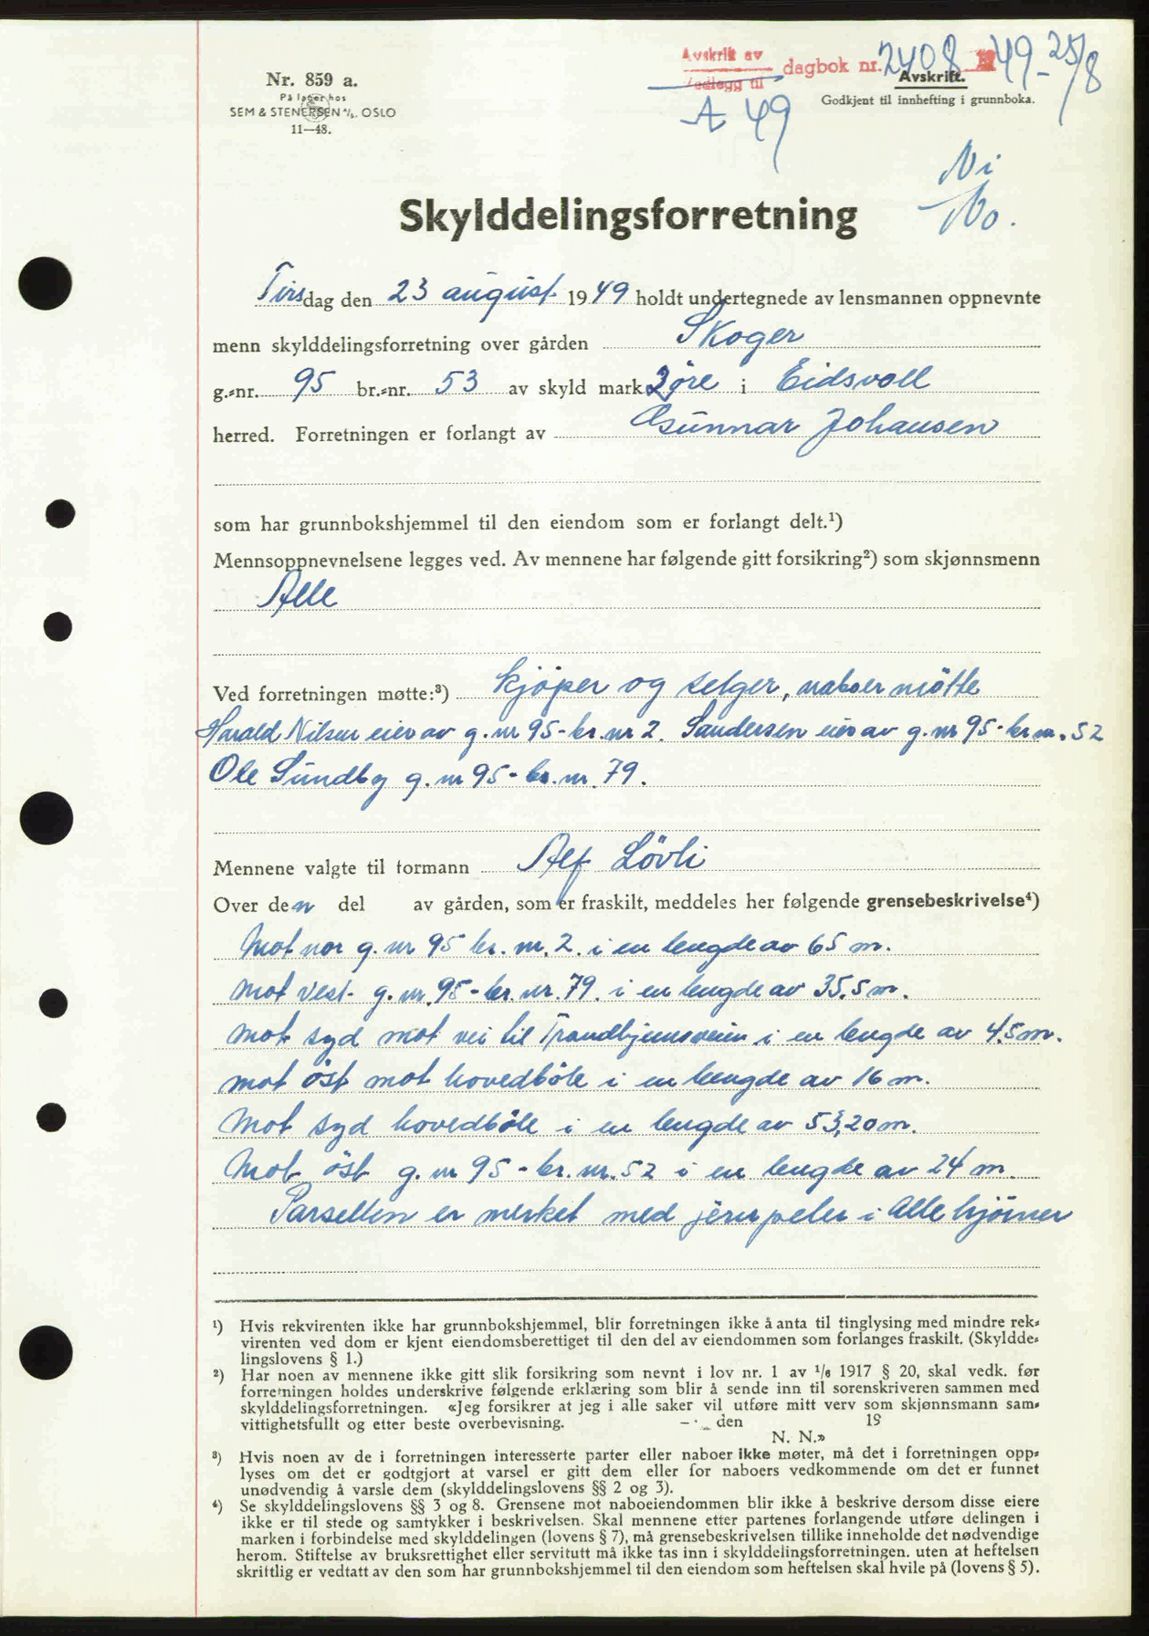 Nr. 859 a.
På lager hos
SEM & STENERSEN A/S. OSLO
11—48.
Avskrift av
Vedlegg til
dagbok nr. 2408 1949 - 25/8
A 49
Avskrift.
Godkjent til innhefting i grunnboka.
Ni
No.
Skylddelingsforretning
Tirsdag den 23 august 1949 holdt undertegnede av lensmannen oppnevnte
menn skylddelingsforretning over gården Skoger
g.-nr. 95 br.-nr. 53 av skyld mark 2 öre i Eidsvoll
herred. Forretningen er forlangt av Gunnar Johansen
som har grunnbokshjemmel til den eiendom som er forlangt delt.¹)
Mennsoppnevnelsene legges ved. Av mennene har følgende gitt forsikring²) som skjønnsmenn
Alle
Ved forretningen møtte:³) kjöper og selger, naboer mötte
Harald Nilsen eier av g. nr 95 - br. nr 2. Sandersen eier av g. nr 95 - br. nr. 52
Ole Sundby g. nr 95 - br. nr. 79.
Mennene valgte til formann Alf Lövli
Over den del av gården, som er fraskilt, meddeles her følgende grensebeskrivelse⁴)
Mot nor g. nr 95 br. nr. 2. i en lengde av 65 m.
Mot vest g. nr. 95 - br. nr. 79. i en lengde av 35.5 m.
Mot syd mot vei til Trondhjemsveien i en lengde av 4.5 m.
mot öst mot hovedböle i en lengde av 16 m.
Mot syd hovedböle i en lengde av 53,20 m.
Mot öst g. nr 95 - br. nr. 52 i en lengde av 24 m.
Parsellen er merket med jernpeler i Alle hjörner
¹) Hvis rekvirenten ikke har grunnbokshjemmel, blir forretningen ikke å anta til tinglysing med mindre rek-
virenten ved dom er kjent eiendomsberettiget til den del av eiendommen som forlanges fraskilt. (Skyldde-
lingslovens § 1.)
²) Har noen av mennene ikke gitt slik forsikring som nevnt i lov nr. 1 av 1/6 1917 § 20, skal vedk. før
forretningen holdes underskrive følgende erklæring som blir å sende inn til sorenskriveren sammen med
skylddelingsforretningen. «Jeg forsikrer at jeg i alle saker vil utføre mitt verv som skjønnsmann sam-
vittighetsfullt og etter beste overbevisning. den 19
N. N.»
³) Hvis noen av de i forretningen interesserte parter eller naboer ikke møter, må det i forretningen opp-
lyses om det er godtgjort at varsel er gitt dem eller for naboers vedkommende om det er funnet
unødvendig å varsle dem (skylddelingslovens §§ 2 og 3).
⁴) Se skylddelingslovens §§ 3 og 8. Grensene mot naboeiendommen blir ikke å beskrive dersom disse eiere
ikke er til stede og samtykker i beskrivelsen. Skal mennene etter partenes forlangende utføre delingen i
marken i forbindelse med skylddelingen (lovens § 7), må grensebeskrivelsen tillike inneholde det nødvendige
herom. Stiftelse av bruksrettighet eller servitutt må ikke tas inn i skylddelingsforretningen. uten at heftelsen
skriftlig er vedtatt av den som har grunnbokshjemmel til den eiendom som heftelsen skal hvile på (lovens § 5).